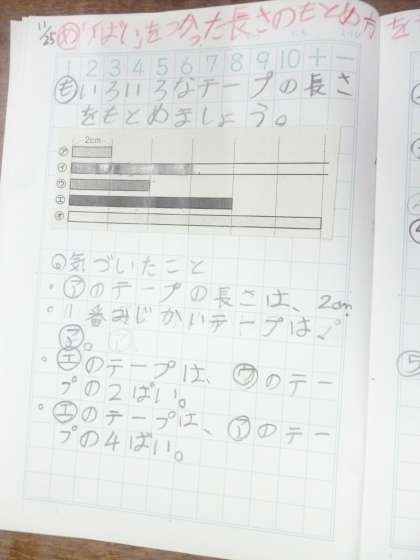 11/25 め「ばい」をつかった長さのもとめ方を
1 2 3 4 5 6 7 8 9 10 + −
もいろいろなテープの長さ
をもとめましょう。
2cm
ア
イ
ウ
エ
オ
気づいたこと
・アのテープの長さは、2cm
・1番みじかいテープは、
ア。
・エのテープは、ウのテー
プの2ばい。
・エのテープは、アのテー
プの4ばい。
⑤